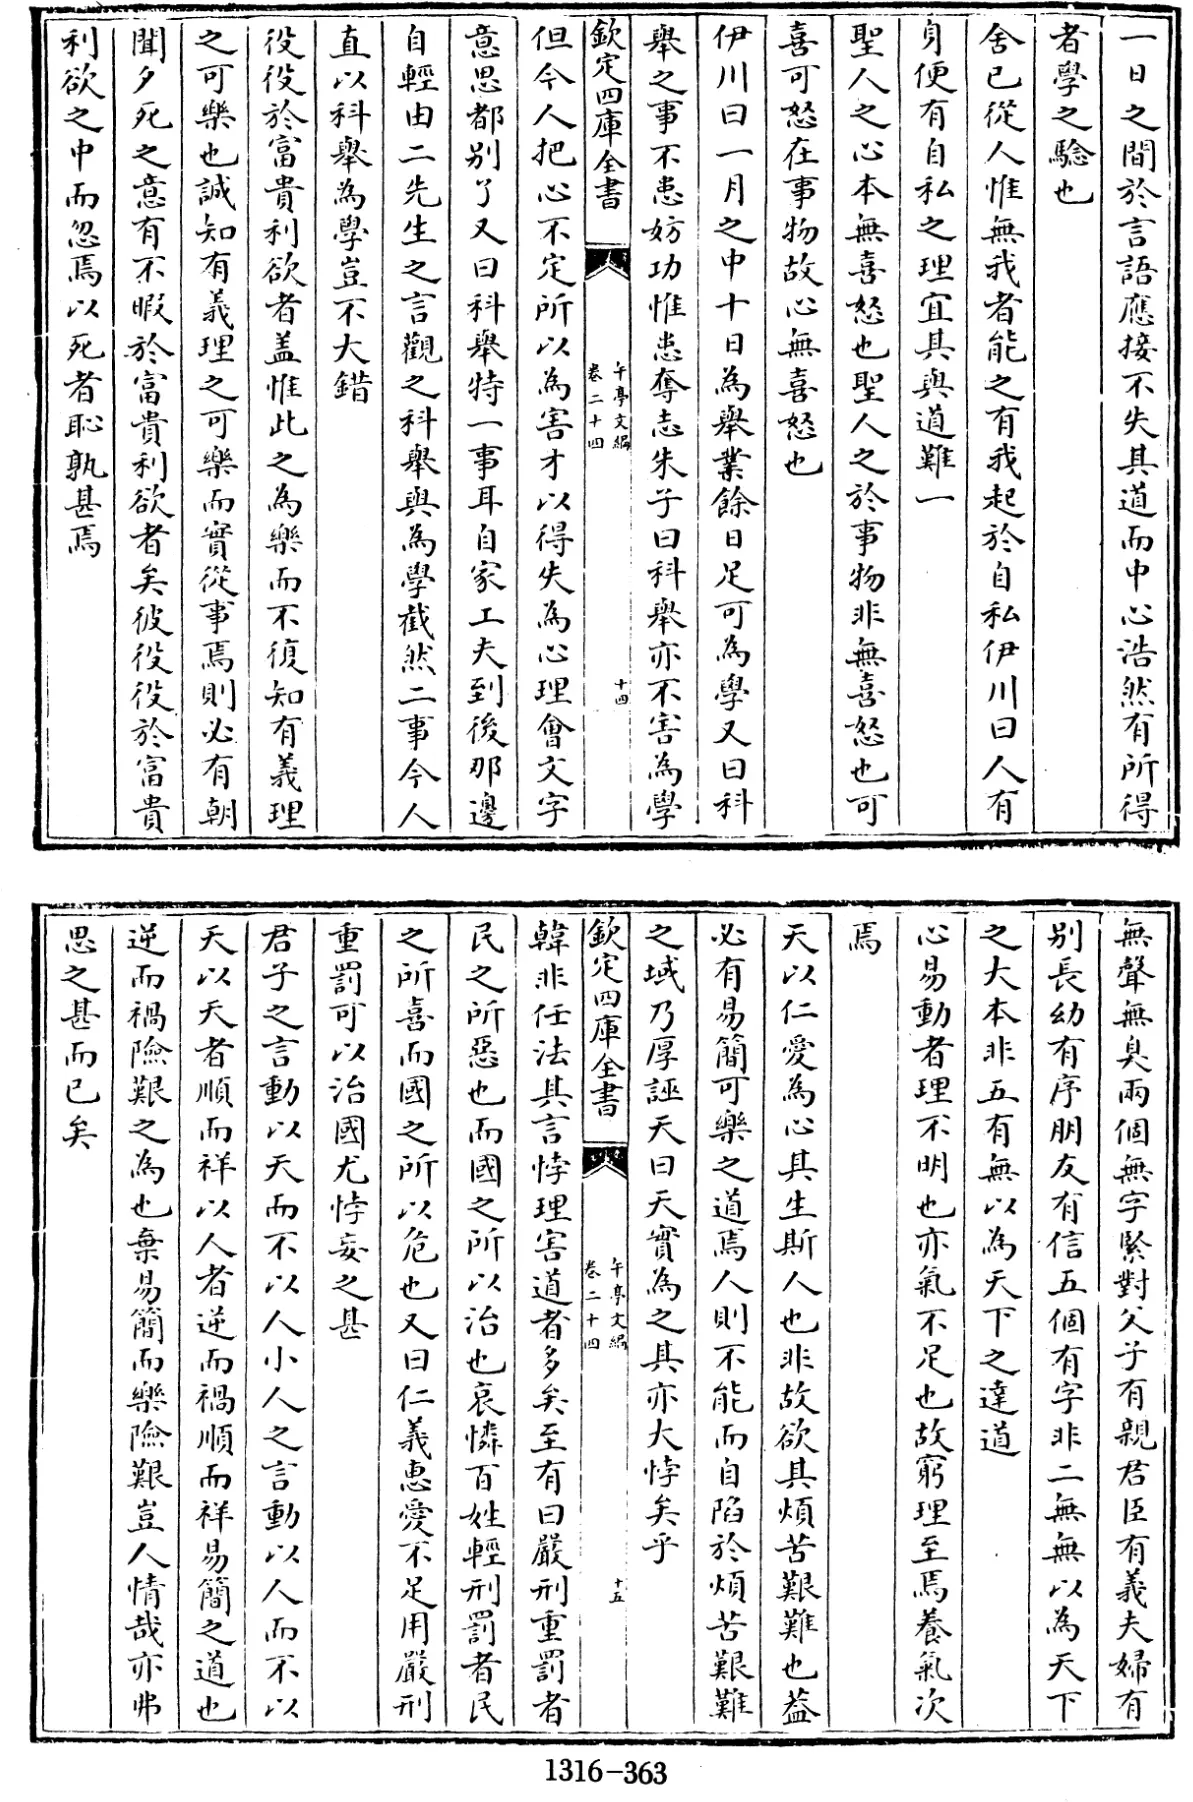 一日之間於言語應接不失其道而中心浩然有所得
者學之驗也
舍已從人惟無我者能之有我起於自私伊川曰人有
身便有自私之理宜其與道難一
聖人之心本無喜怒也聖人之於事物非無喜怒也可
喜可怒在事物故心無喜怒也
伊川曰一月之中十日為舉業餘日足可為學又曰科
舉之事不患妨功惟患奪志朱子曰科舉亦不害為學
欽定四庫全書
午亭文編
卷二十四
十四
但今人把心不定所以為害才以得失為心理會文字
意思都别了又曰科舉特一事耳自家工夫到後那邊
自輕由二先生之言觀之科舉與為學截然二事今人
直以科舉為學豈不大錯
役役於富貴利欲者盖惟此之為樂而不復知有義理
之可樂也誠知有義理之可樂而實從事焉則必有朝
聞夕死之意有不暇於富貴利欲者矣彼役役於富貴
利欲之中而忽焉以死者恥孰甚焉
無聲無臭兩個無字緊對父子有親君臣有義夫婦有
别長幼有序朋友有信五個有字非二無無以為天下
之大本非五有無以為天下之達道
心易動者理不明也亦氣不足也故窮理至焉養氣次
焉
天以仁愛為心其生斯人也非故欲其煩苦艱難也益
必有易簡可樂之道焉人則不能而自陷於煩苦艱難
之域乃厚誣天曰天實為之其亦大悖矣乎
欽定四庫全書
午亭文編
卷二十四
十五
韓非任法其言悖理害道者多矣至有曰嚴刑重罰者
民之所惡也而國之所以治也哀憐百姓輕刑罰者民
之所喜而國之所以危也又曰仁義惠愛不足用嚴刑
重罰可以治國尤悖妄之甚
君子之言動以天而不以人小人之言動以人而不以
天以天者順而祥以人者逆而禍順而祥易簡之道也
逆而禍險艱之為也棄易簡而樂險艱豈人情哉亦弗
思之甚而已矣
1316-363